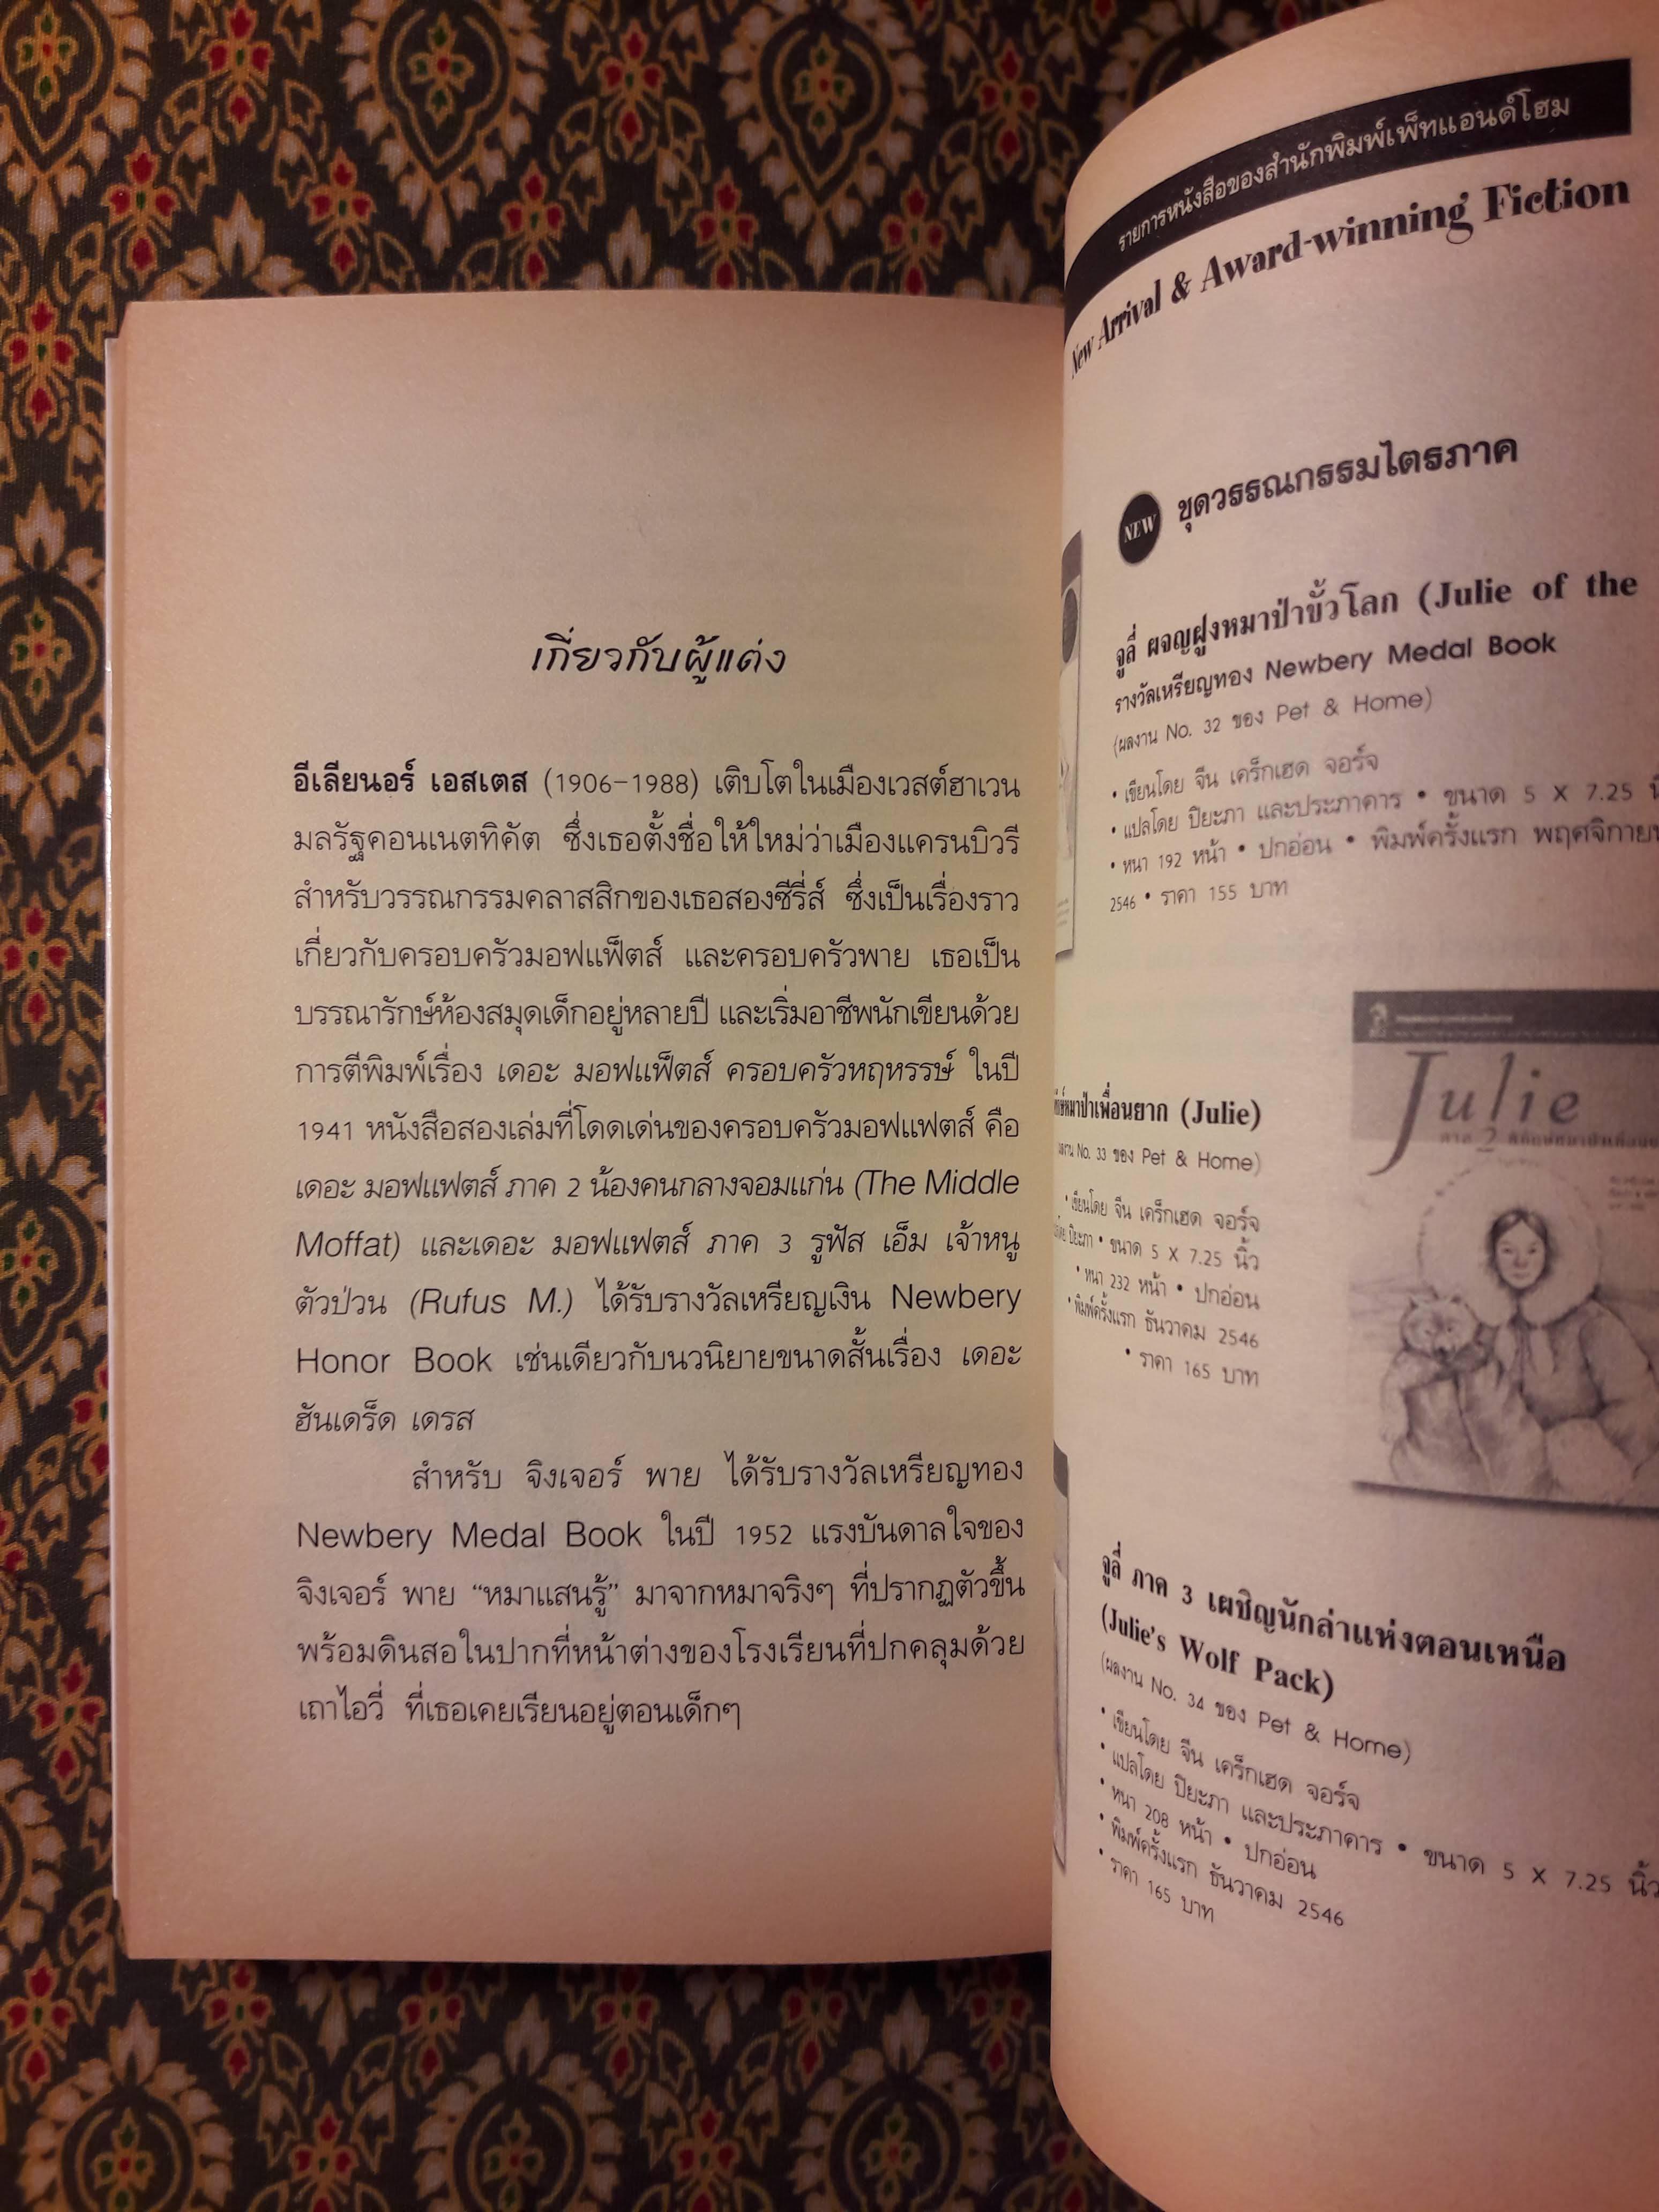 เกี่ยวกับผู้แต่ง
อีเลียนอร์ เอสเตส (1906-1988) เติบโตในเมืองเวสต์ฮาเวน
มลรัฐคอนเนตทิคัต ซึ่งเธอตั้งชื่อให้ใหม่ว่าเมืองแครนบิวรี
สำหรับวรรณกรรมคลาสสิกของเธอสองซีรี่ส์ ซึ่งเป็นเรื่องราว
เกี่ยวกับครอบครัวมอฟแฟ็ตส์ และครอบครัวพาย เธอเป็น
บรรณารักษ์ห้องสมุดเด็กอยู่หลายปี และเริ่มอาชีพนักเขียนด้วย
การตีพิมพ์เรื่อง เดอะ มอฟแฟ็ตส์ ครอบครัวหฤหรรษ์ ในปี
1941 หนังสือสองเล่มที่โดดเด่นของครอบครัวมอฟแฟตส์ คือ
เดอะ มอฟแฟตส์ ภาค 2 น้องคนกลางจอมแก่น (The Middle
Moffat) และเดอะ มอฟแฟตส์ ภาค 3 รูฟัส เอ็ม เจ้าหนู
ตัวป่วน (Rufus M.) ได้รับรางวัลเหรียญเงิน Newbery
Honor Book เช่นเดียวกับนวนิยายขนาดสั้นเรื่อง เดอะ
ฮันเดร็ด เดรส
สำหรับ จิงเจอร์ พาย ได้รับรางวัลเหรียญทอง
Newbery Medal Book ในปี 1952 แรงบันดาลใจของ
จิงเจอร์ พาย “หมาแสนรู้” มาจากหมาจริงๆ ที่ปรากฏตัวขึ้น
พร้อมดินสอในปากที่หน้าต่างของโรงเรียนที่ปกคลุมด้วย
เถาไอวี่ ที่เธอเคยเรียนอยู่ตอนเด็กๆ
รายการหนังสือของสำนักพิมพ์เพ็ทแอนด์โฮม
New Arrival & Award-winning Fiction
NEW ชุดวรรณกรรมไตรภาค
จูลี่ ผจญฝูงหมาป่าขั้วโลก (Julie of the
รางวัลเหรียญทอง Newbery Medal Book
(ผลงาน No. 32 ของ Pet & Home)
• เขียนโดย จีน เคร็กเฮด จอร์จ
• แปลโดย ปิยะภา และประภาคาร • ขนาด 5 X 7.25
• หนา 192 หน้า • ปกอ่อน • พิมพ์ครั้งแรก
2546 • ราคา 155 บาท
หมาป่าเพื่อนยาก (Julie)
No. 33 ของ Pet & Home)
• เขียนโดย จีน เคร็กเฮด จอร์จ
ปิยะภา • ขนาด 5 X 7.25 นิ้ว
• หนา 232 หน้า • ปกอ่อน
• พิมพ์ครั้งแรก ธันวาคม 2546
• ราคา 165 บาท
Julie
ภาค 2
จูลี่ ภาค 3 เผชิญนักล่าแห่งตอนเหนือ
(Julie's Wolf Pack)
(ผลงาน No. 34 ของ Pet & Home)
• เขียนโดย จีน เคร็กเฮด จอร์จ
• แปลโดย ปิยะภา และประภาคาร • ขนาด 5 X 7.25 นิ้ว
• หนา 208 หน้า • ปกอ่อน
• พิมพ์ครั้งแรก ธันวาคม 2546
• ราคา 165 บาท